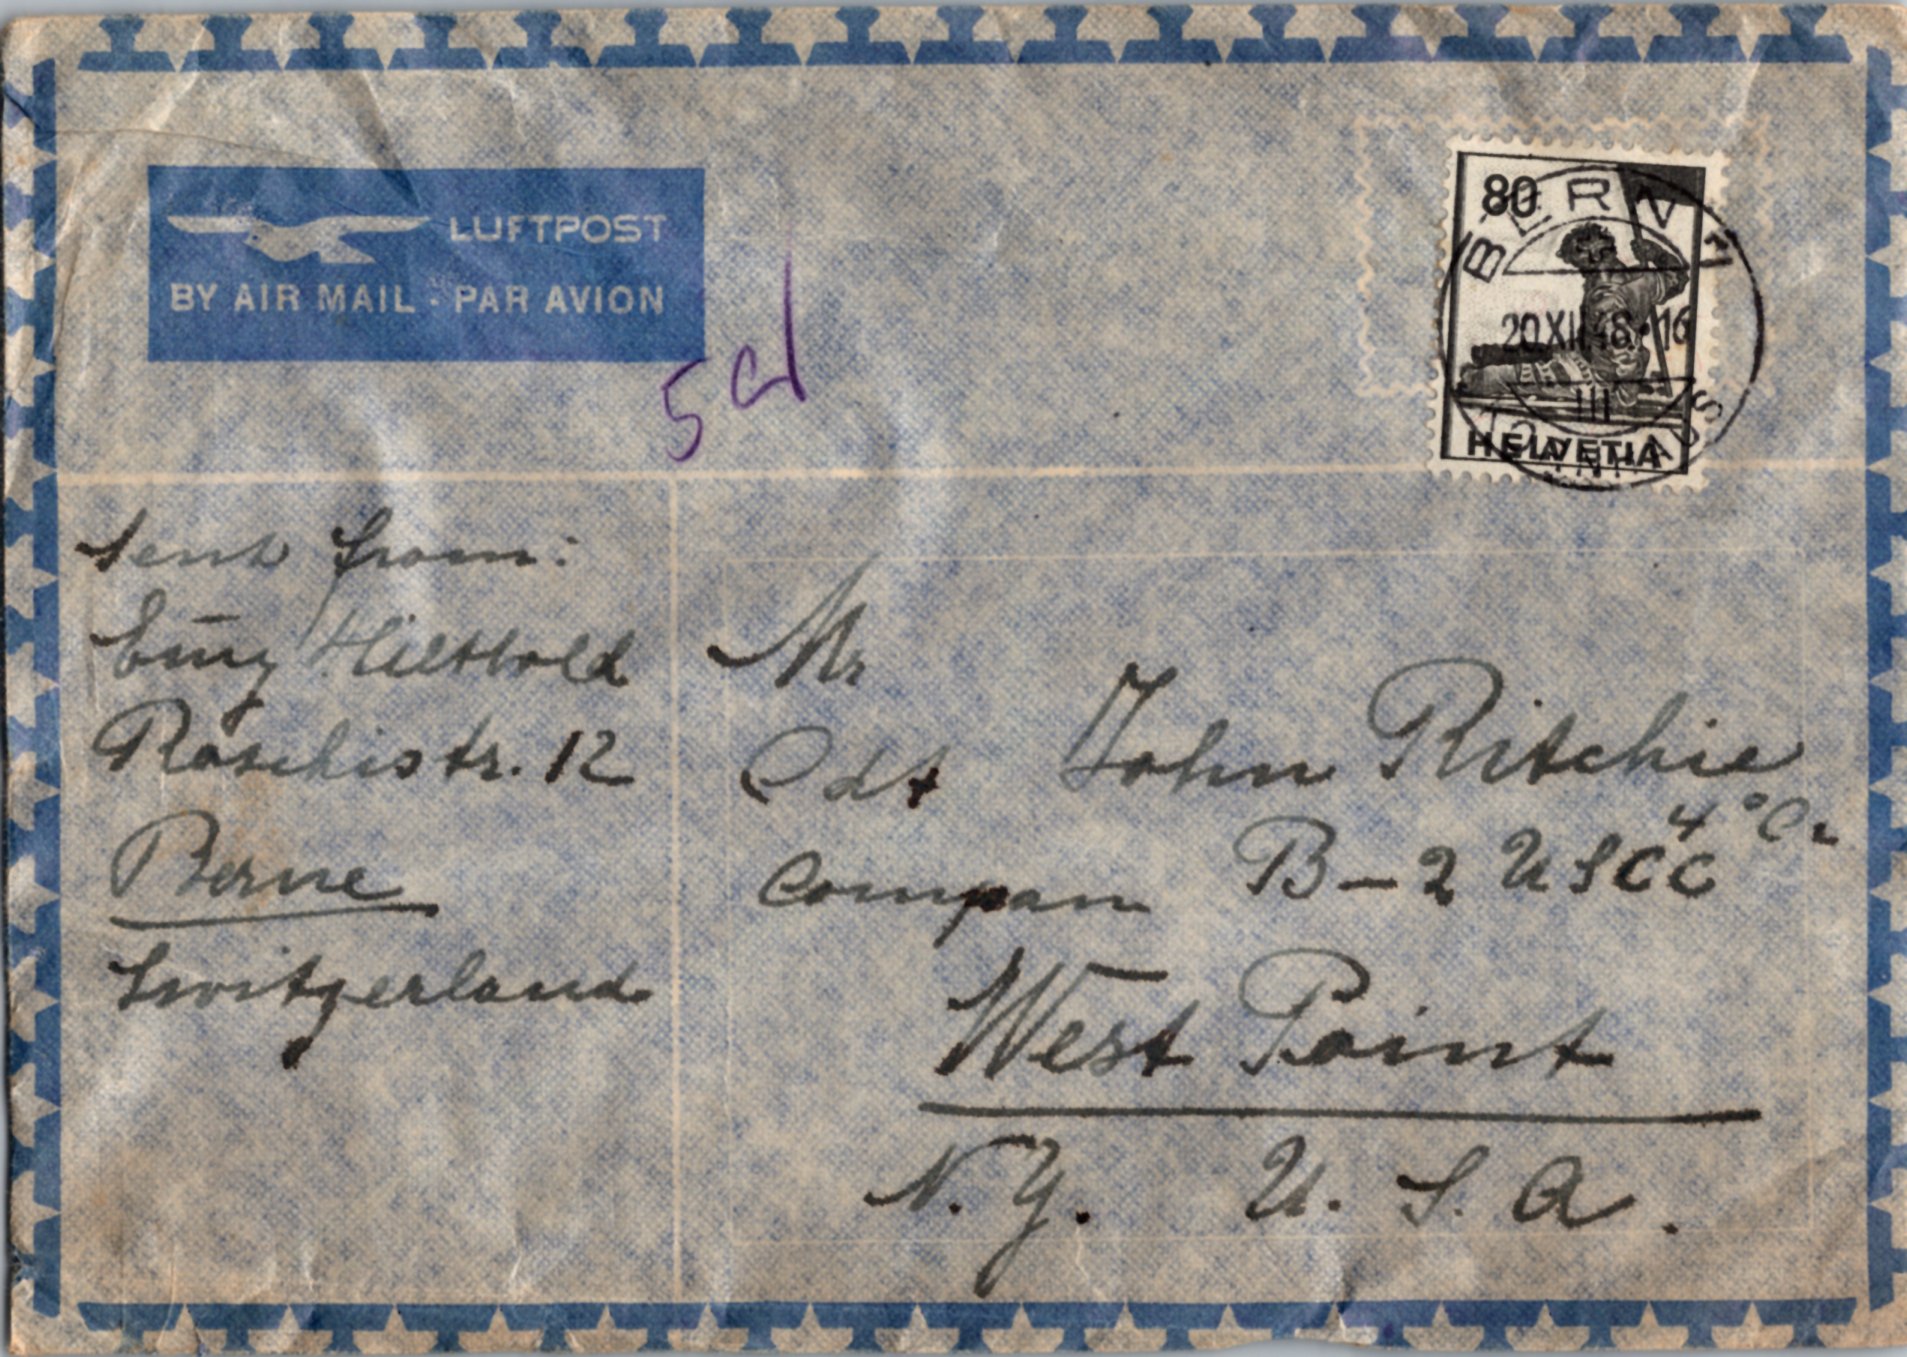 LUFTPOST
BY AIR MAIL - PAR AVION
5cl
80
BERN 11
20.XII.48.-16
III
HELVETIA
sent from:
Hiltbold
Röschistr. 12
Berne
Switzerland
Mr
Cdt John Ritchie
4° Cl
Compan B-2 USCC
West Point
N.Y. U.S.A.